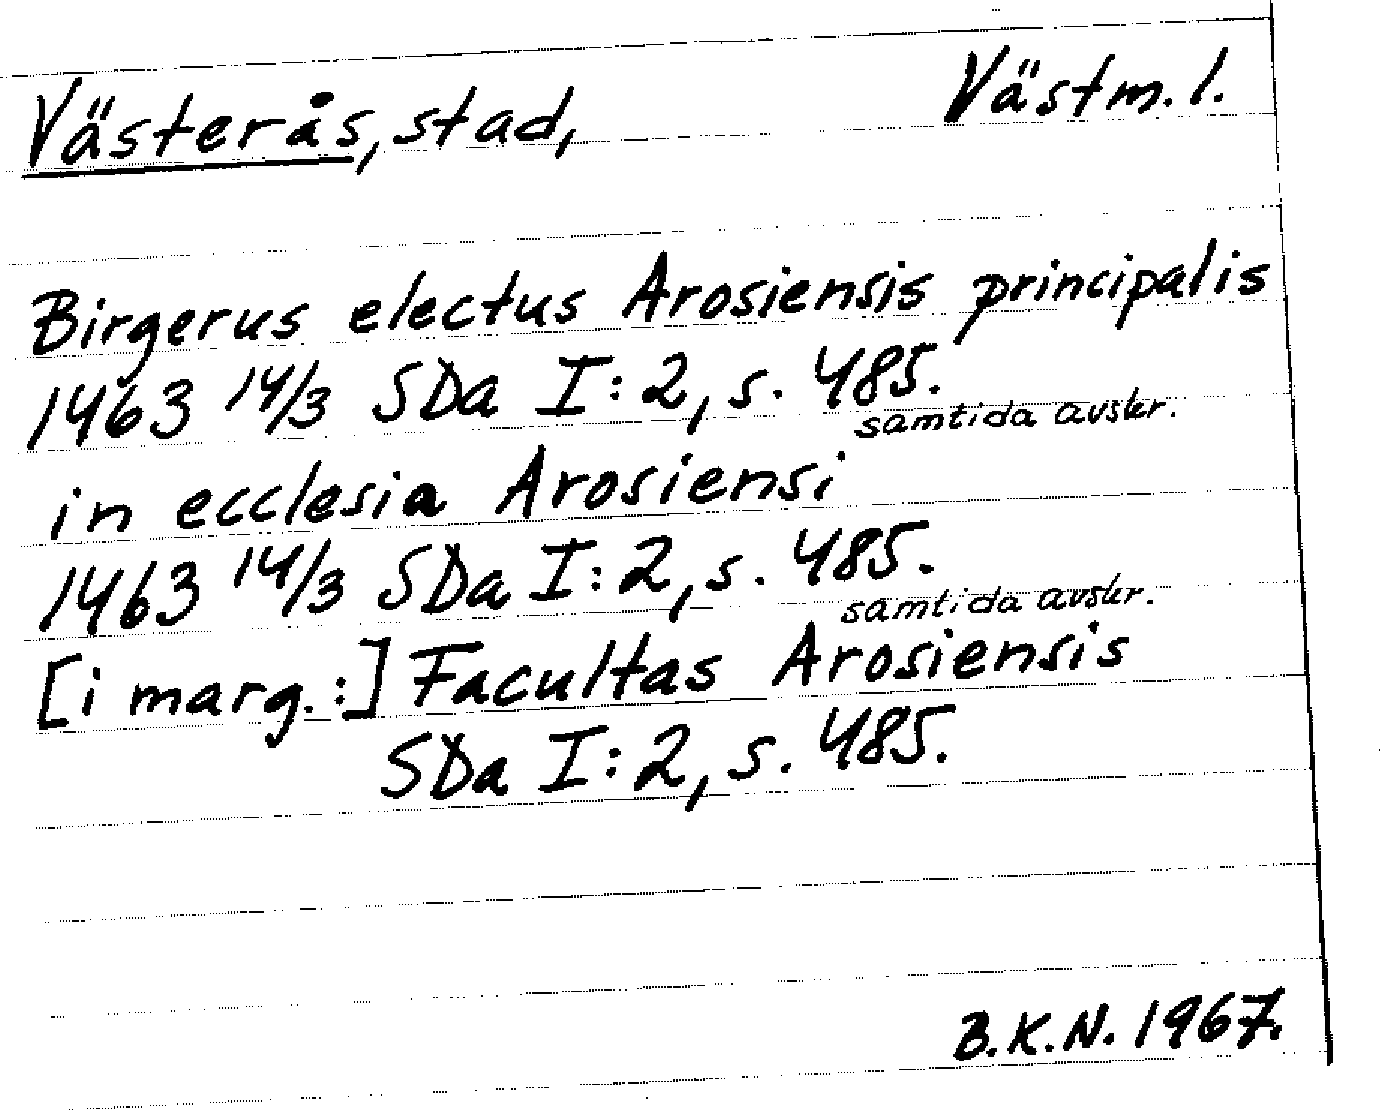 Västerås, stad, Västm. l.
Birgerus electus Arosiensis principalis
1463 14/3 SDa I:2, s. 485.
samtida avskr.
in ecclesia Arosiensi
1463 14/3 SDa I:2, s. 485.
samtida avskr.
[i marg.:] Facultas Arosiensis
SDa I:2, s. 485.
B.K.N. 1967.